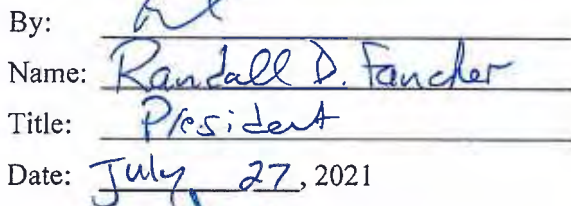 By:
Name: Randall D. Fancher
Title: President
Date: July 27, 2021